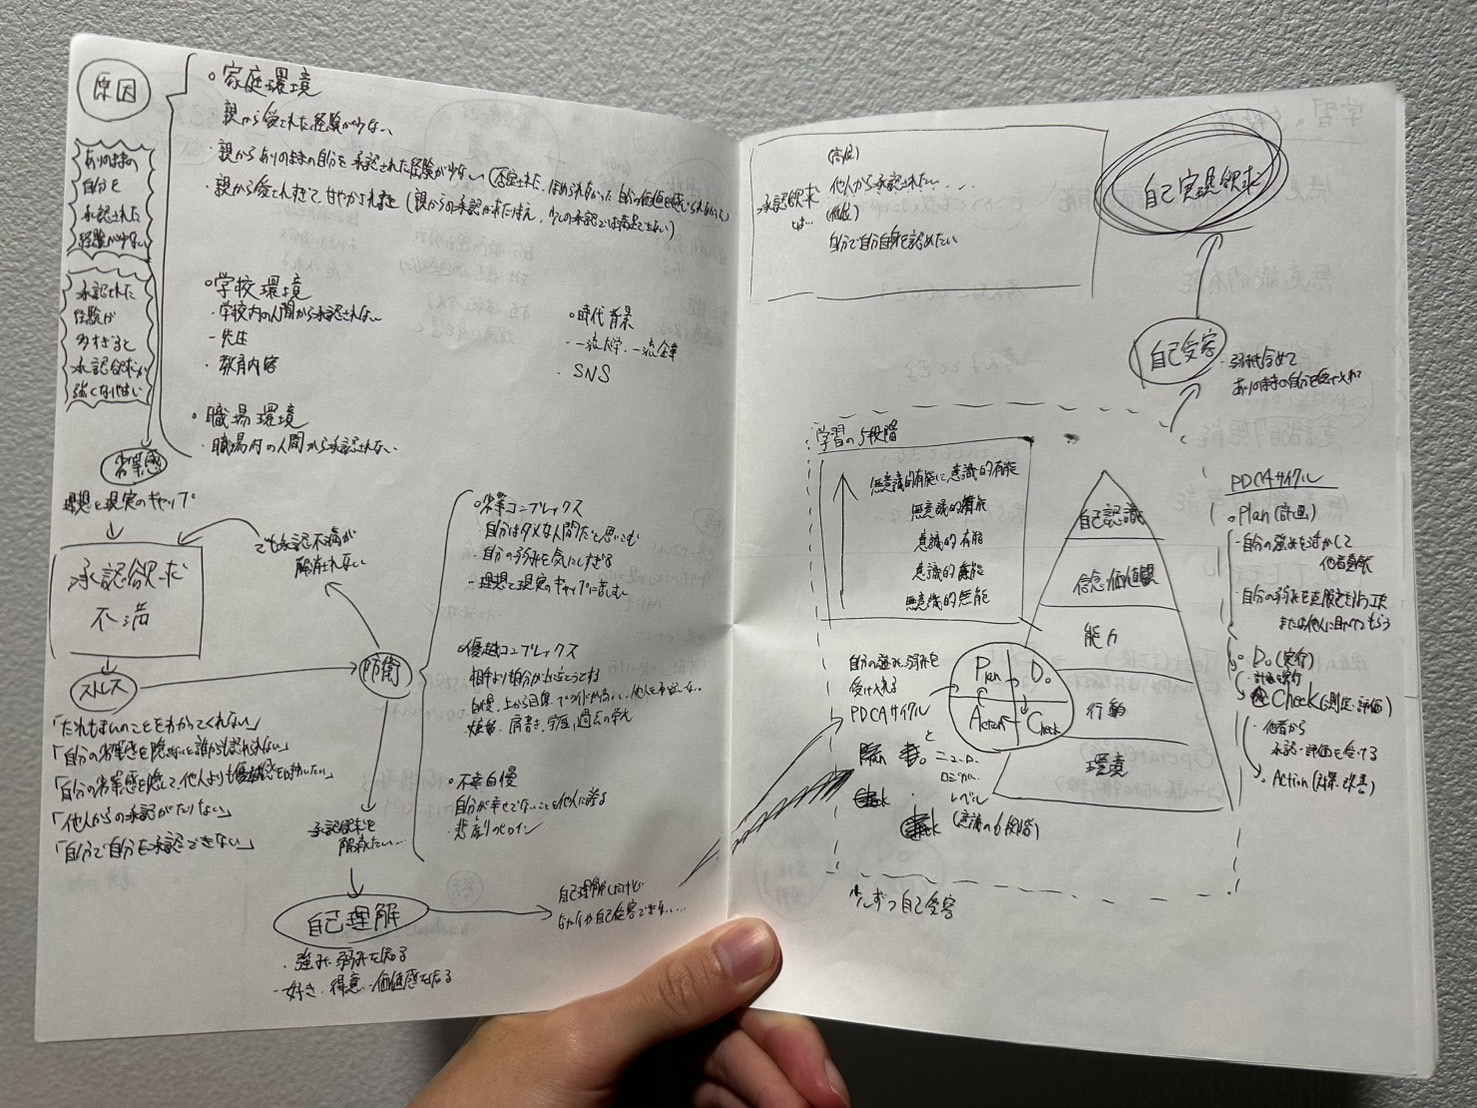 原因
ありのままの
自分を
承認された
経験が少ない
承認された
経験が
多すぎると
承認欲求が
強くなりやすい
○家庭環境
・親から愛された経験が少ない
・親からありのままの自分を承認された経験が少ない(否定された、ほめられなかった、自分の価値を感じられなかった)
・親から愛されすぎて、甘やかされすぎ(親からの承認があたりまえ、少しの承認では満足できない)
○学校環境
・学校内の人間から承認されない
- 先生
・教育内容
○時代背景
・一流大学、一流企業
・SNS
○職場環境
・職場内の人間から承認されない
劣等感
理想と現実のギャップ
承認欲求
不満
でも承認不満が
解消されない
ストレス
防衛
「だれもまいのことをわかってくれない」
「自分の劣等感を隠さないと誰からも認められない」
「自分の劣等感を隠して、他人よりも優越感を」
「他人からの承認がたりない」
「自分で自分を承認できない」
○劣等コンプレックス
自分はダメな人間だと思いこむ
・自分の弱みを気にしすぎる
- 理想と現実のギャップに苦しむ
○優越コンプレックス
相手より自分が上に立とうとする
自慢、上から目線、プライドが高い、
嫉妬、肩書き、学歴、過去の栄光
○不幸自慢
自分が幸せでないことを他人に誇る
・悲劇のヒロイン
承認欲求を
解消したい…
自己理解
・強み、弱みを知る
・好き、得意、価値感を知る
自己理解したけど
なかなか自己受容できない…
承認欲求
とは…
(高位)
他人から承認されたい…
(低位)
自分で自分自身を認めたい
自己実現欲求
自己受容
・弱みも含めて
ありのままの自分を受け入れる
学習の5段階
無意識的有能に意識的有能
無意識的有能
意識的有能
意識的無能
無意識的無能
自己認識
信念・価値観
能力
行動
環境
自分の強み、弱みを
受け入れる
PDCAサイクル
と
ニューロ
ロジカル
レベル
(意識の6段階)
Plan
Do
Action
Check
PDCAサイクル
○Plan(計画)
・自分の強みを活かして
他者貢献
・自分の弱みを
または他人に助けてもらう
○Do(実行)
・計画を実行
Check(測定・評価)
・他者から
承認・評価を受ける
○Action(対策・改善)
少しずつ自己受容